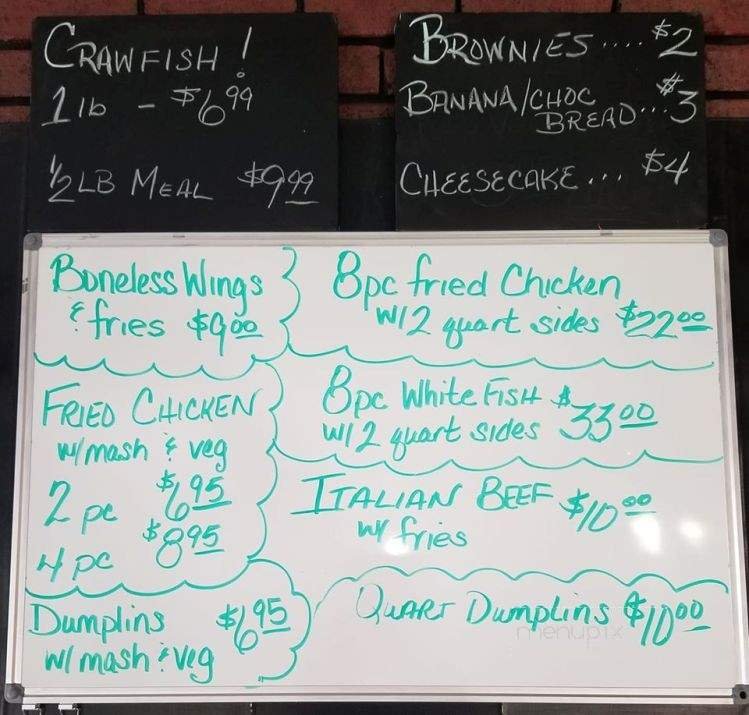 CRAWFISH!
1 lb - $6.99
1/2 LB MEAL $9.99
BROWNIES .... $2
BANANA/CHOC
BREAD... $3
CHEESECAKE... $4
Boneless Wings
& fries $9.00
FRIED CHICKEN
w/ mash & veg
2 pc $6.95
4 pc $8.95
Dumplins $6.95
w/ mash & veg
8pc fried Chicken
w/ 2 quart sides $22.00
8pc White FISH $33.00
w/ 2 quart sides
ITALIAN BEEF $10.00
w/ fries
QUART Dumplins $10.00
menupix